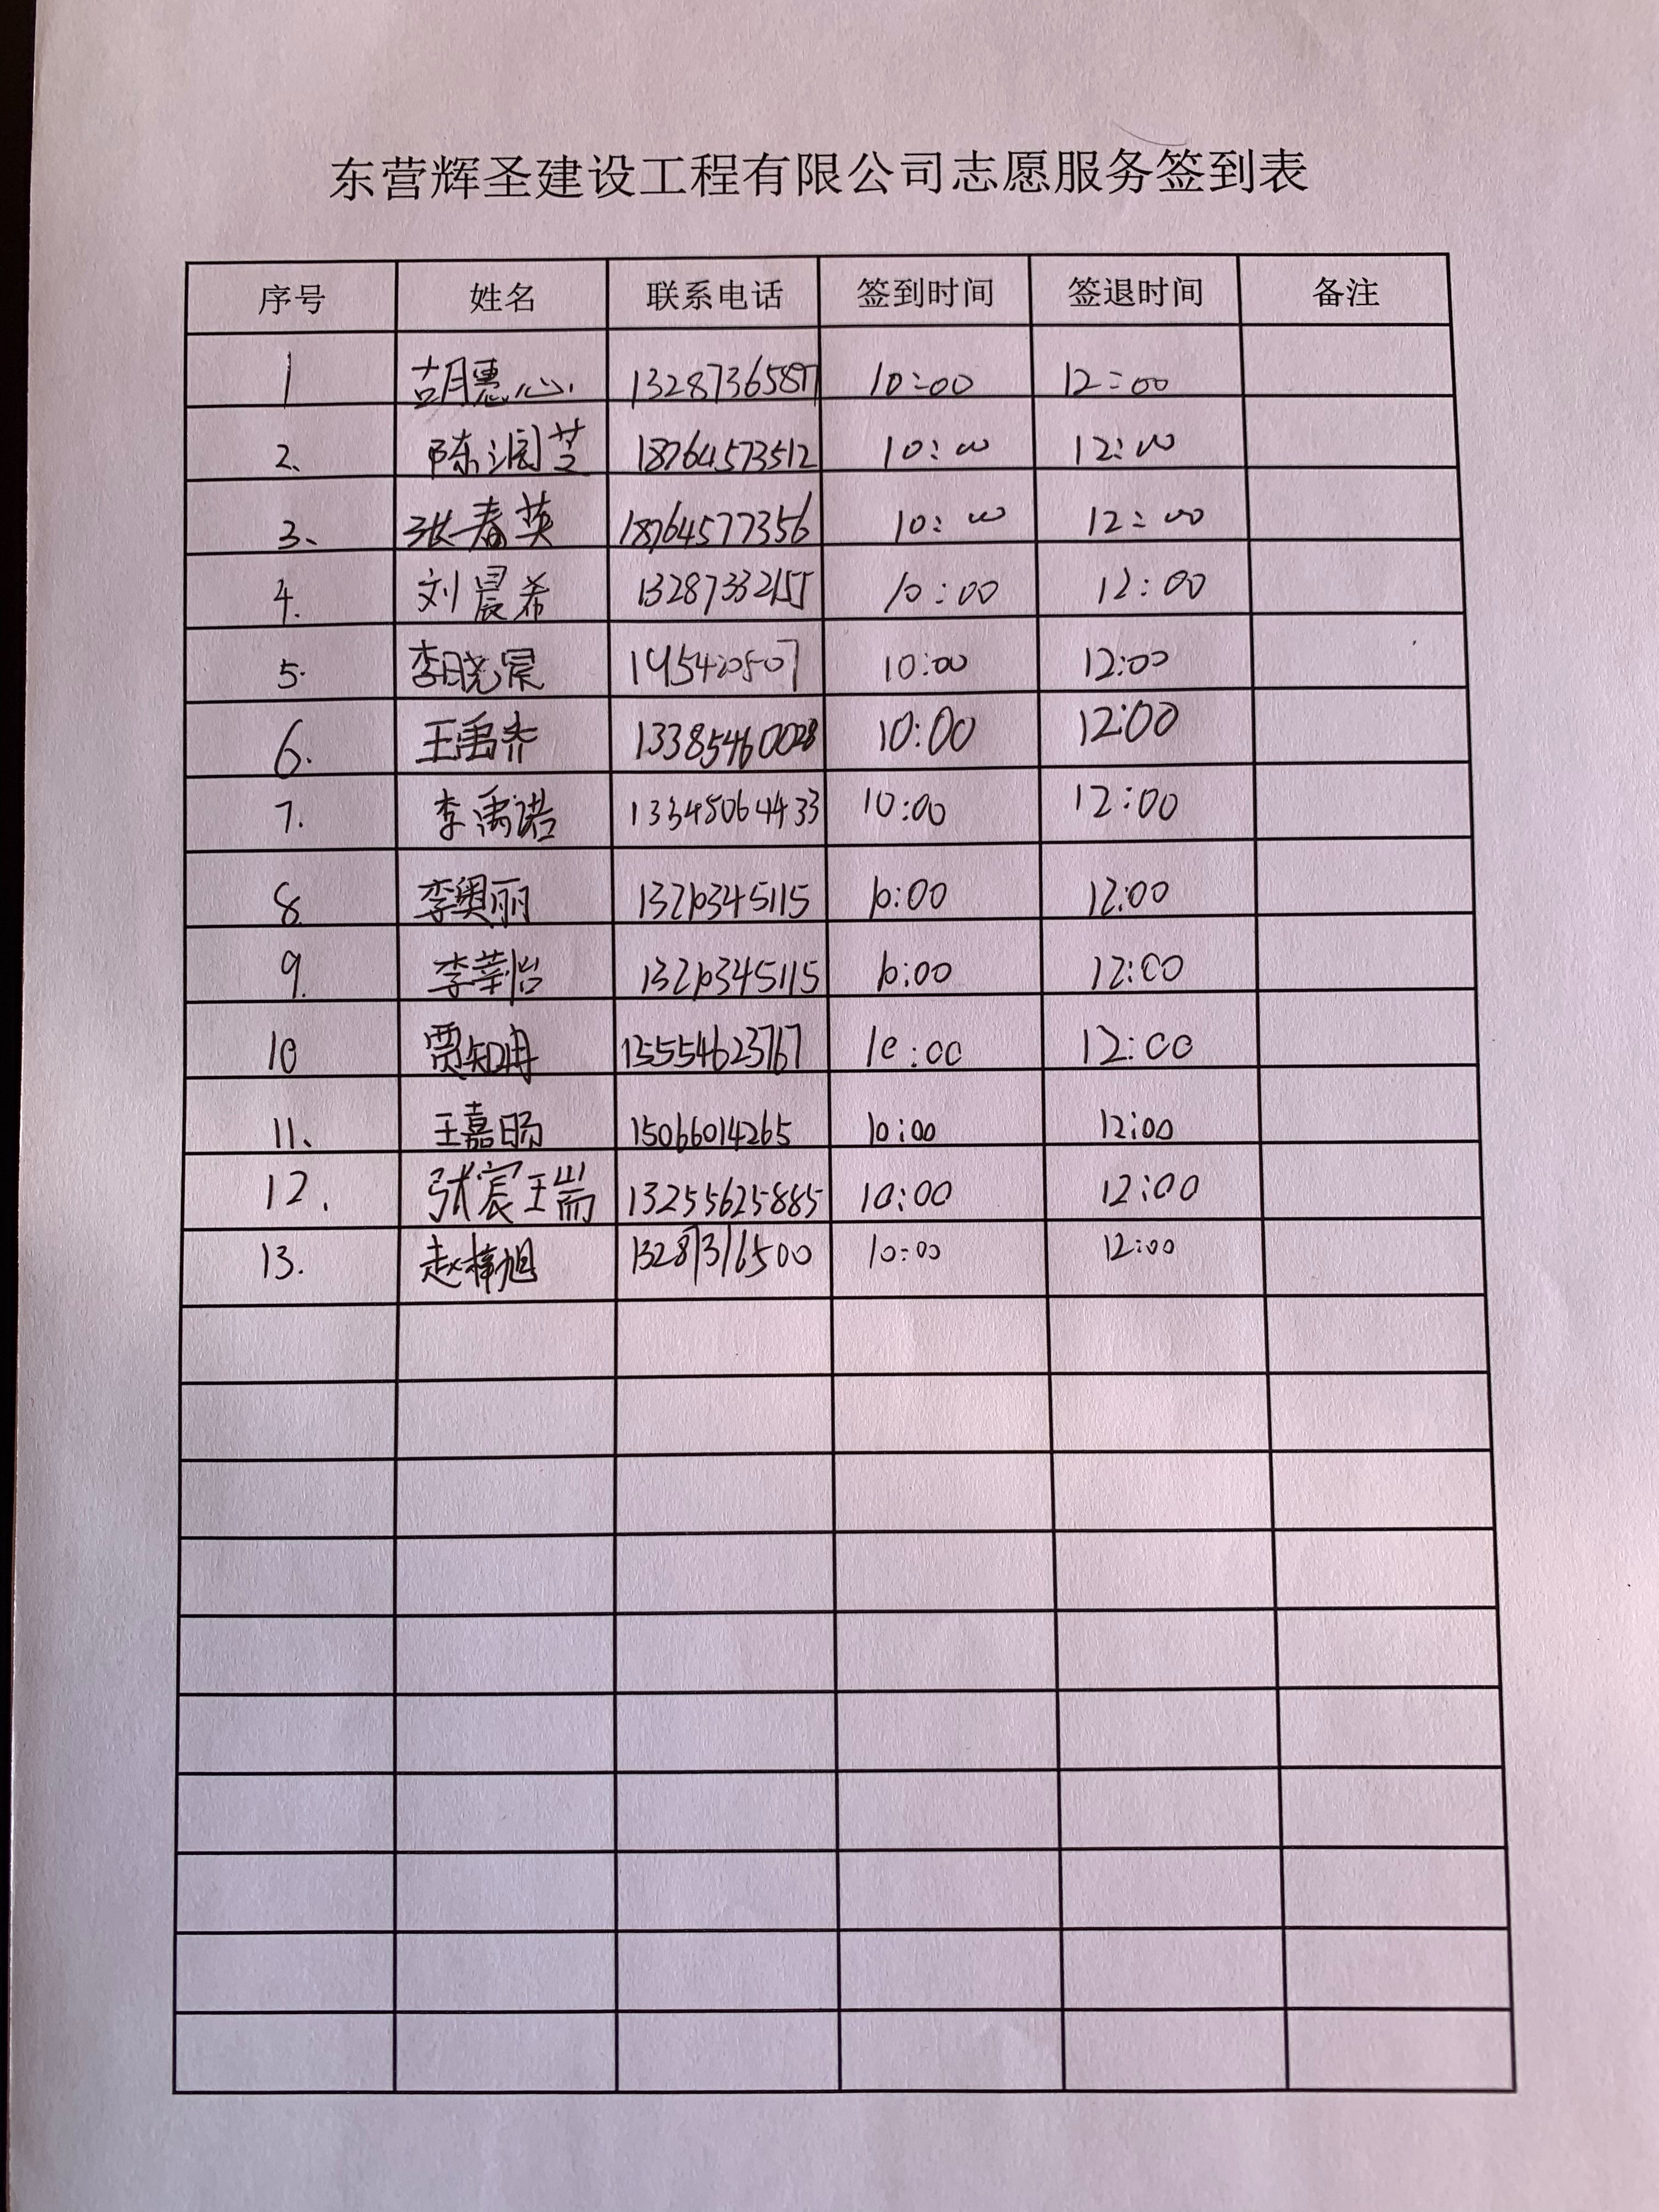 东营辉圣建设工程有限公司志愿服务签到表
序号 姓名 联系电话 签到时间 签退时间 备注
1 胡惠心 10:00 12:00
2、 陈润芝 18764573512 10:00 12:00
3、 张春英 18764577356 10:00 12:00
4. 刘晨希 13287332155 10:00 12:00
5. 李晓晨 10:00 12:00
6. 王禹乔 13385460028 10:00 12:00
7. 李禹诺 13345064433 10:00 12:00
8 李奥丽 13210345115 10:00 12:00
9. 李莘怡 13210345115 10:00 12:00
10 贾知冉 15554623767 10:00 12:00
11、 王嘉旸 15066014265 10:00 12:00
12. 张宸瑞 13255625885 10:00 12:00
13. 赵梓旭 13287316500 10:00 12:00